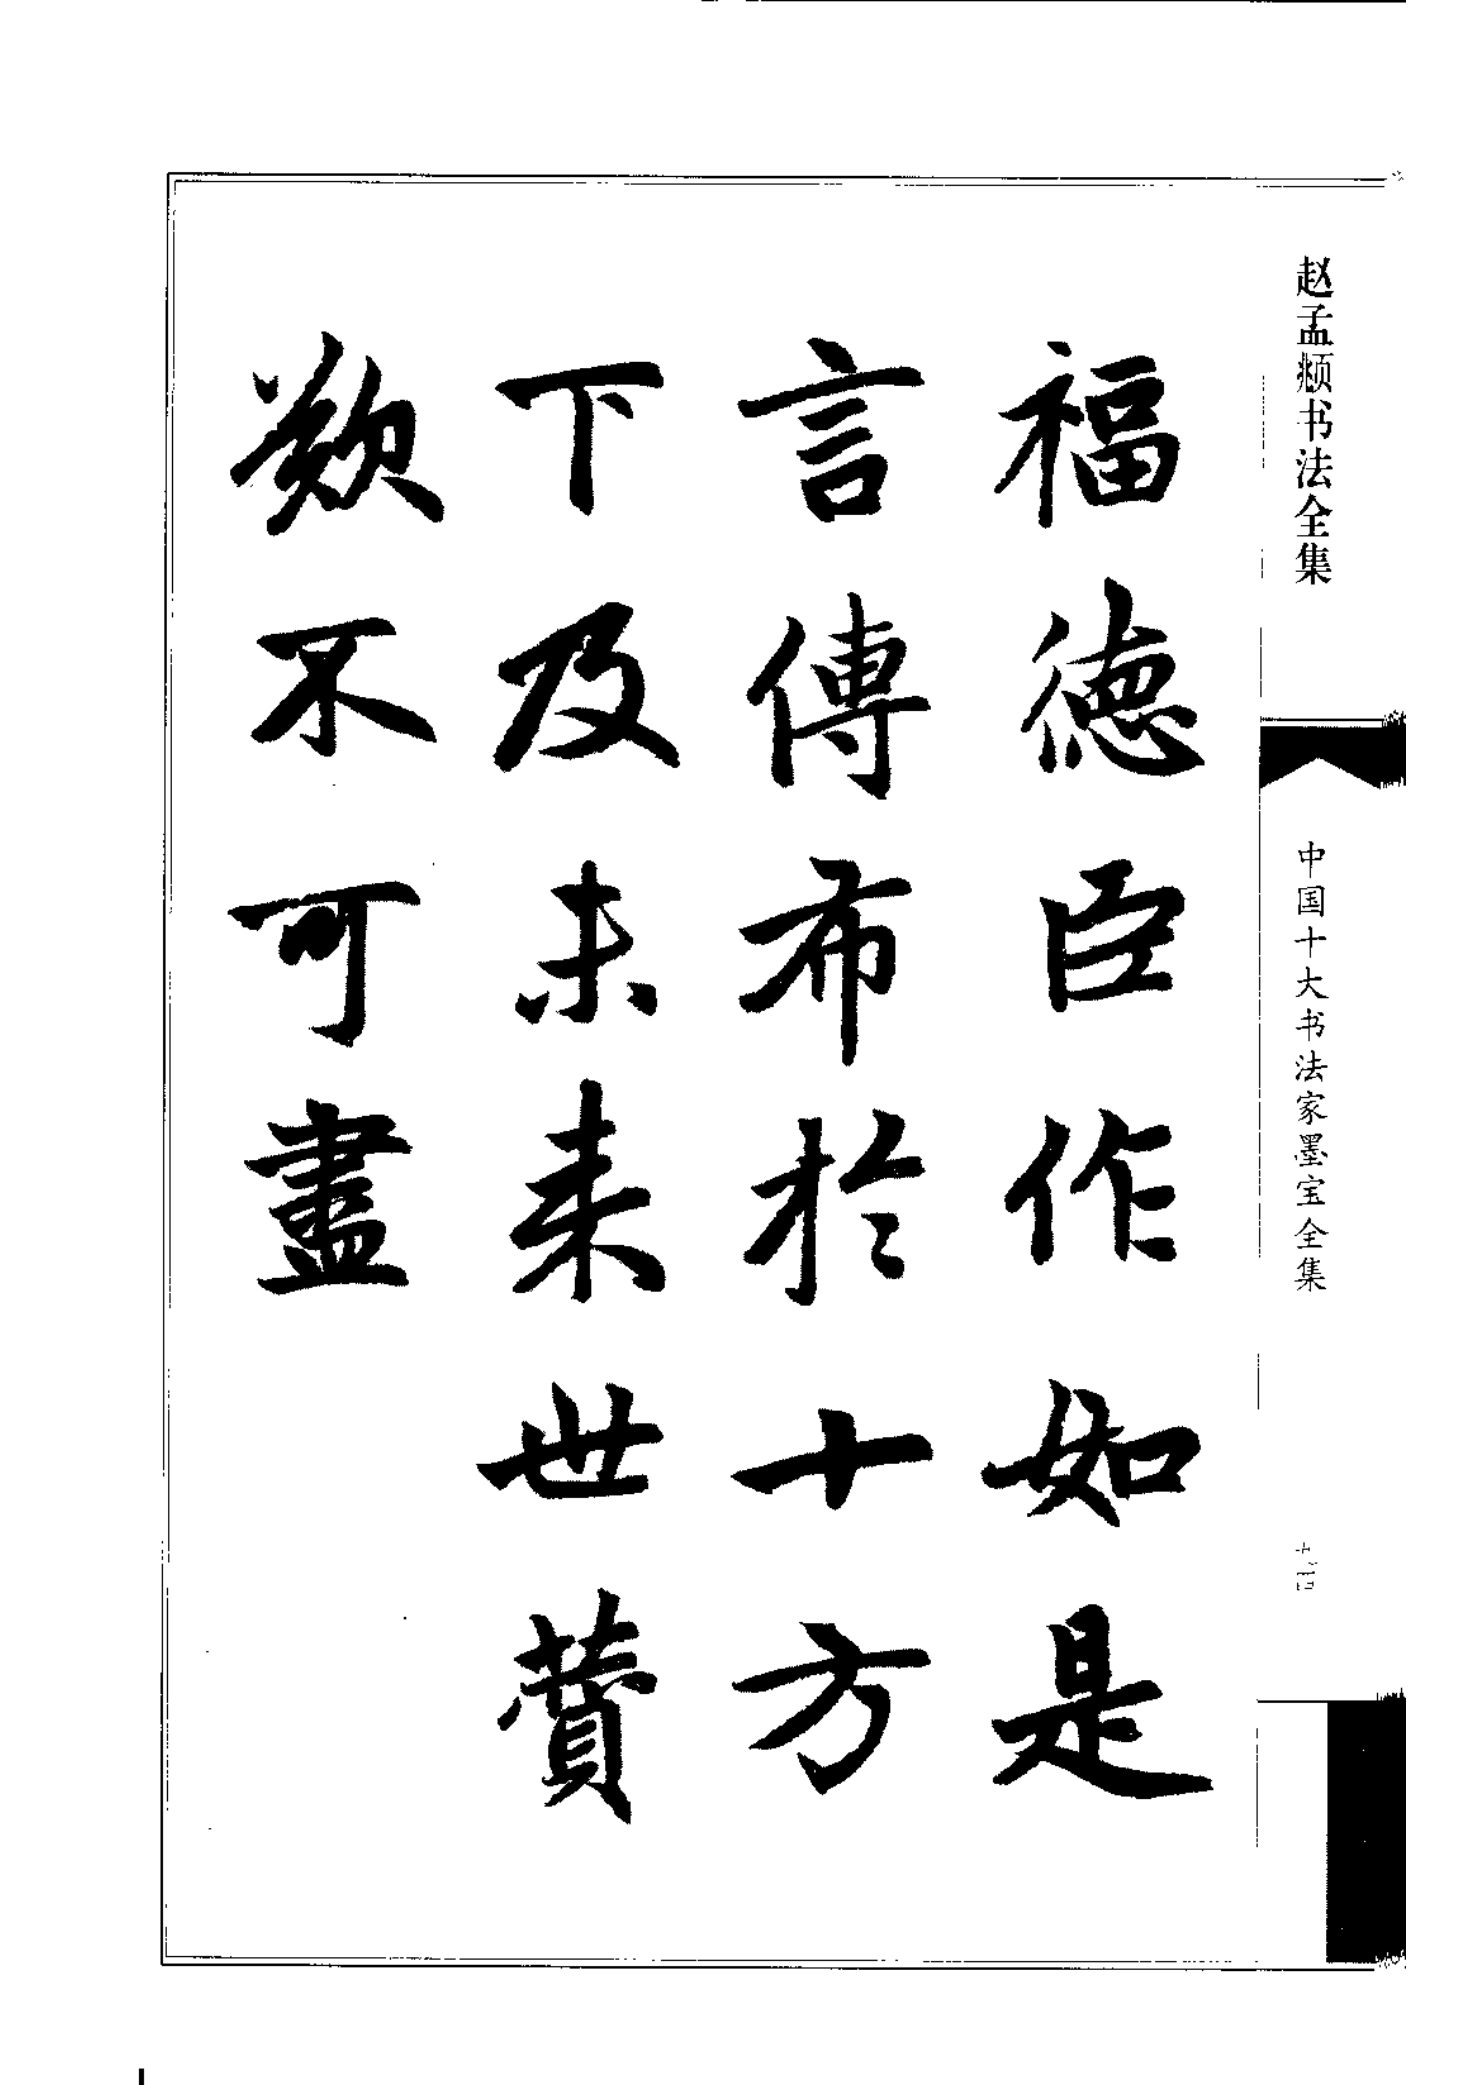 赵孟頫书法全集
中国十大书法家墨宝全集
福德臣作如是
言傳布於十方
下及未来世讚
歎不可盡